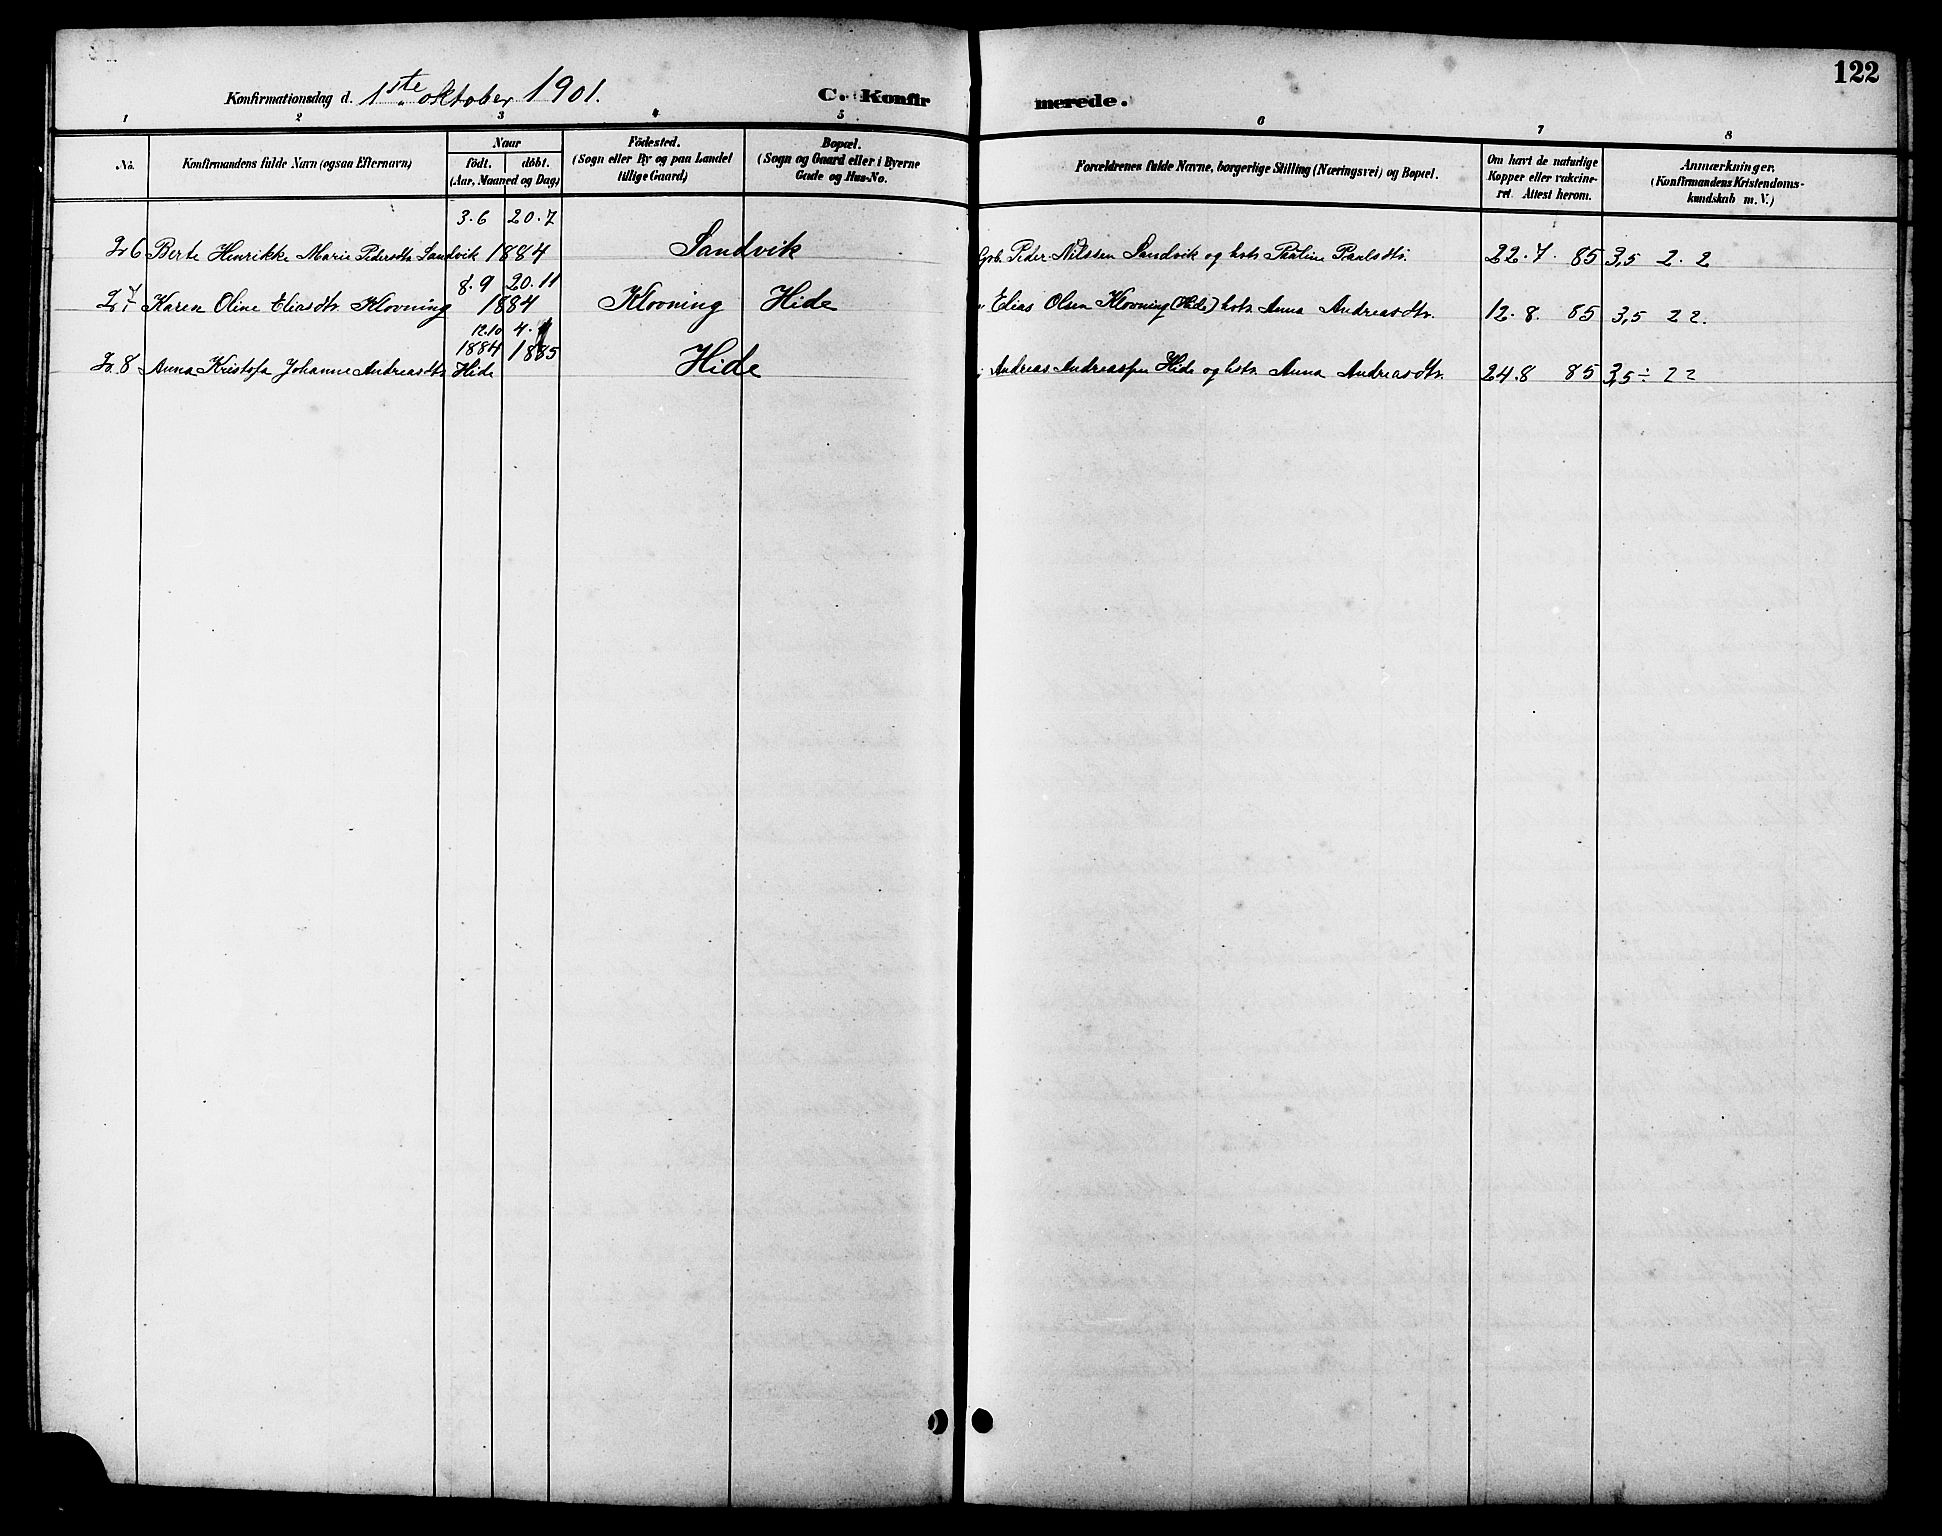 122
Konfirmationsdag d. 1ste oktober 1901. C. Konfirmerede.
1 2 3 4 5 6 7 8
No. Konfirmandens fulde Navn (ogsaa Efternavn) Naar födt. döbt. (Aar, Maaned og Dag) Födested. (Sogn eller By og paa Landet tillige Gaard) Bopæl. (Sogn og Gaard eller i Byerne Gade og Hus-No. Forældrenes fulde Navne, borgerlige Stilling (Næringsvei) og Bopæl. Om havt de naturlige Kopper eller vakcineret. Attest herom. Anmærkninger. (Konfirmandens Kristendomskundskab m. V.)
3.6 20.7
26 Berte Henrikke Marie Pedersdtr Sandvik 1884 Sandvik Grb. Peder Nilssen Sandvik og hstr. Pauline Paulsdtr. 22.7. 85 3,5 2. 2
8.9 20.11
27 Karen Oline Eliasdtr. Klovning 1884 Klovning Hide Elias Olsen Klovning (Hide) hstr. Anna Andreasdtr. 12. 8. 85 3,5 2 2.
12.10 4.1
1884 1885
28 Anna Kristofa Johanne Andreasdtr Hide Hide Andreas Andreassen Hide og hstr. Anna Andreasdtr. 24.8 85 3,5 ÷ 2 2